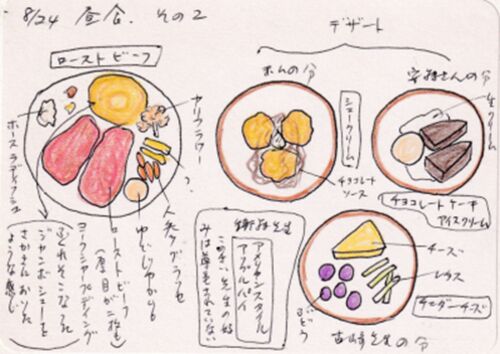 8/24 昼食. その2
デザート
ローストビーフ
ホースラディッシュ
カリフラワー
人参グラッセ
ゆでじゃがいも
ローストビーフ
(厚目が二枚も)
ヨークシャプディング
ジャンボシューを
さかさにおいた
ような感じ
ホムの分
シュークリーム
チョコレート
ソース
さんの分
生クリーム
チョコレートケーキ
アイスクリーム
アメリカンスタイル
アップルパイ
先生の好
みは尊重されていない
チーズ
レタス
ぶどう
チェダーチーズ
先生の分